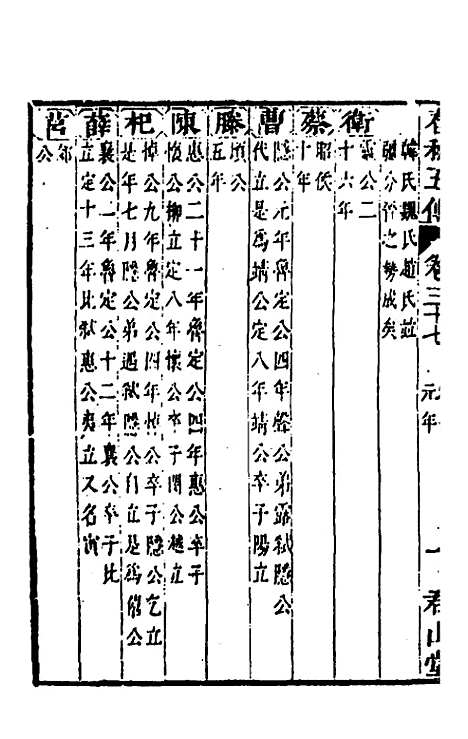 春秋五傳 卷三十七 元年 一 君山堂
韓氏魏氏趙氏並
分晉之勢成矣
衛
靈公二
十六年
蔡
昭侯
十年
曹
隱公元年魯定公四年聲公弟露弒隱公
代立是爲靖公定八年靖公卒子陽立
滕
頃公
五年
陳
惠公二十一年魯定公四年惠公卒子
懷公柳立定八年懷公卒子閔公越立
杞
悼公九年魯定公四年悼公卒子隱公乞立
是年七月隱公弟遇弒隱公自立是爲僖公
薛
襄公一年魯定公十二年襄公卒子比
立定十三年比弒惠公夷立又名寅
莒
郊
公